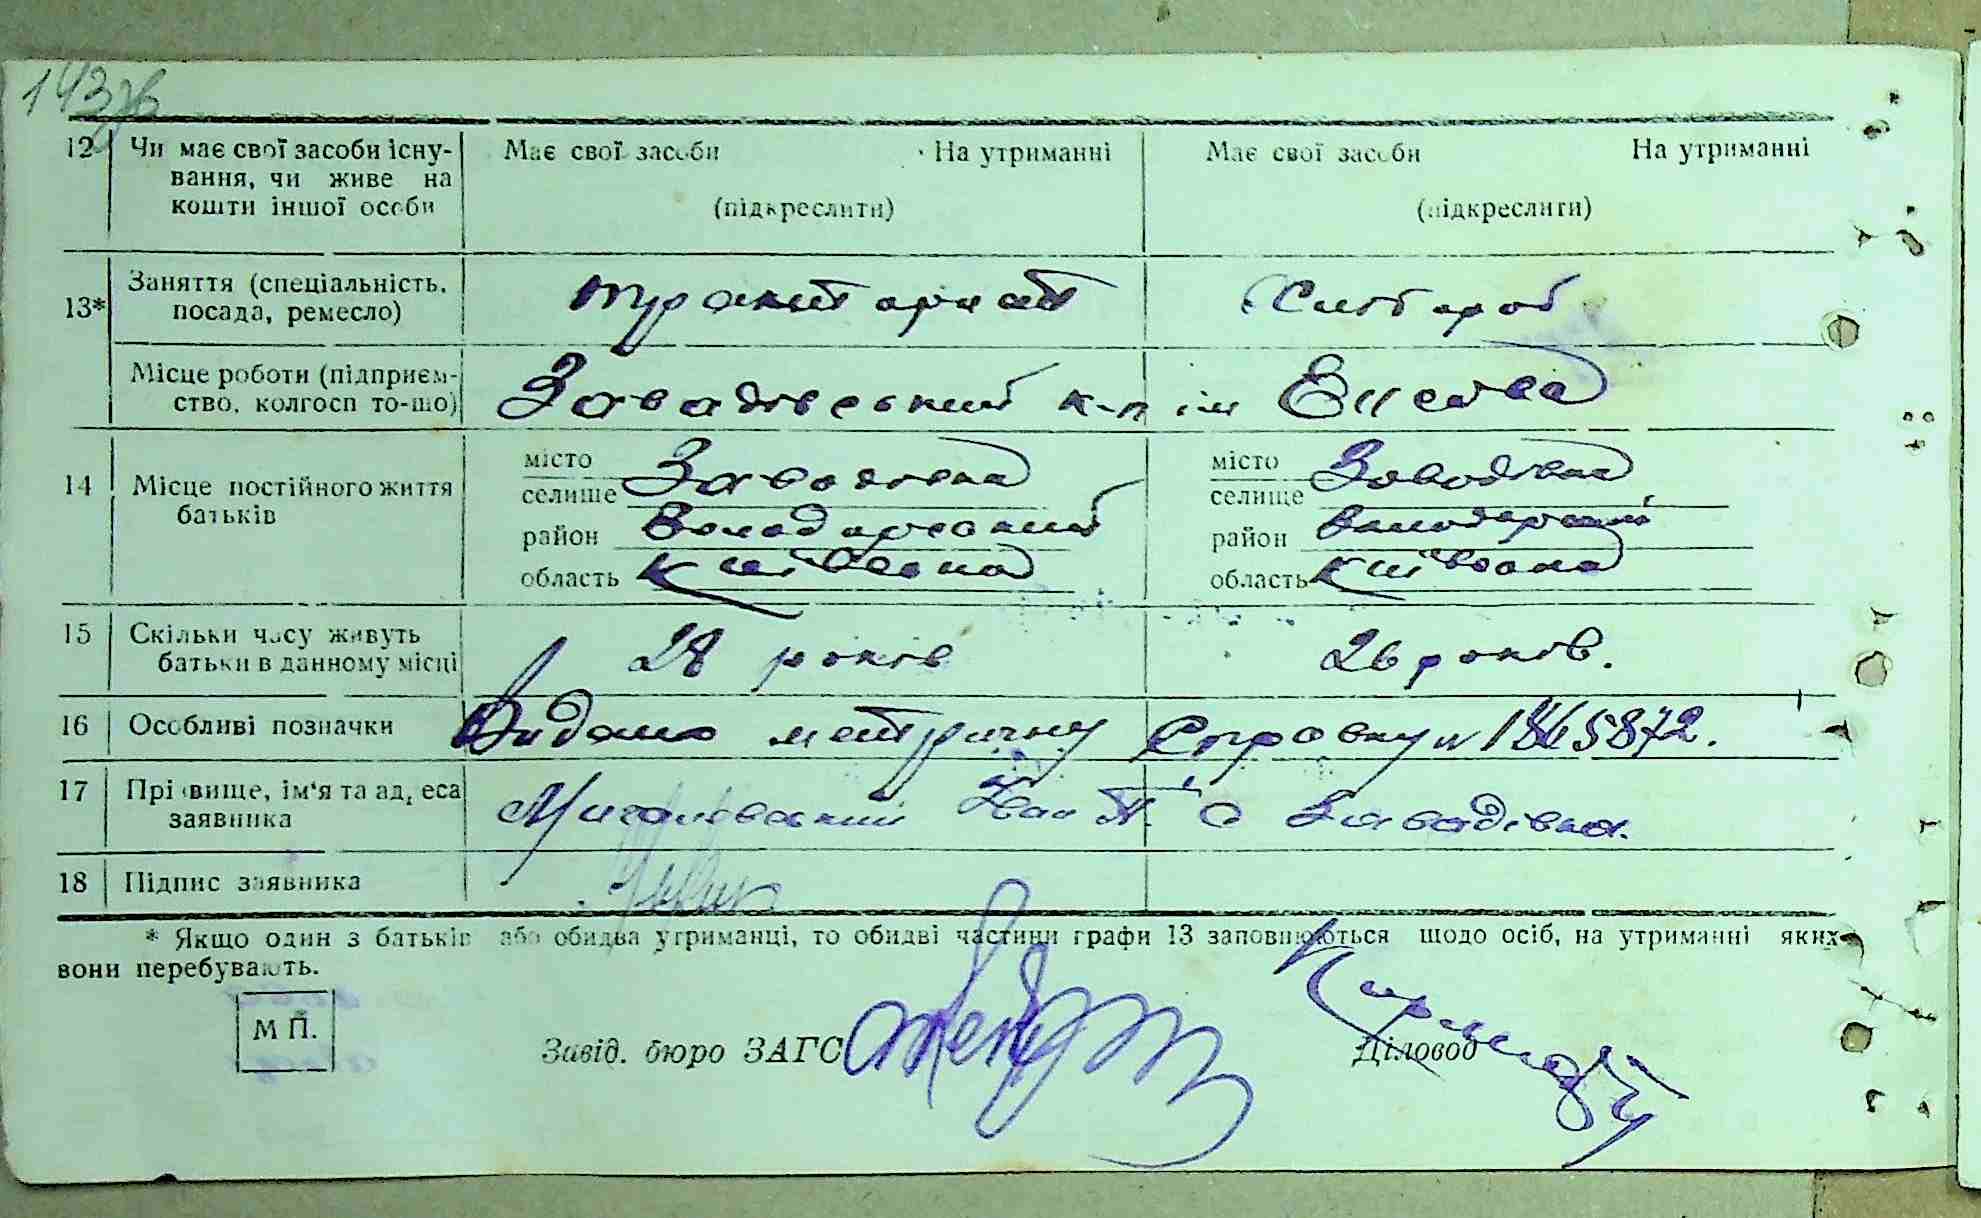 143зв
12 Чи має свої засоби існу- Має свої засоби На утриманні Має свої засоби На утриманні
вання, чи живе на
кошти іншої особи (підкреслити) (підкреслити)
13* Заняття (спеціальність, тракторист Хлібороб
посада, ремесло)
Місце роботи (підприєм- Завадівський к-п ім
ство, колгосп то-що)
14 Місце постійного життя місто Завадовка місто Заводівка
батьків селище селище
район Володарський район Володарський
область Київська область Київська
15 Скільки часу живуть 28 років 26 років.
батьки в данному місці
16 Особливі позначки Видано метричну справку №
17 Прізвище, ім'я та адреса Іван П. с Завадівка.
заявника
18 Підпис заявника
* Якщо один з батьків або обидва утриманці, то обидві частини графи 13 заповнюються щодо осіб, на утриманні яких
вони перебувають.
М П.
Завід. бюро ЗАГС Діловод